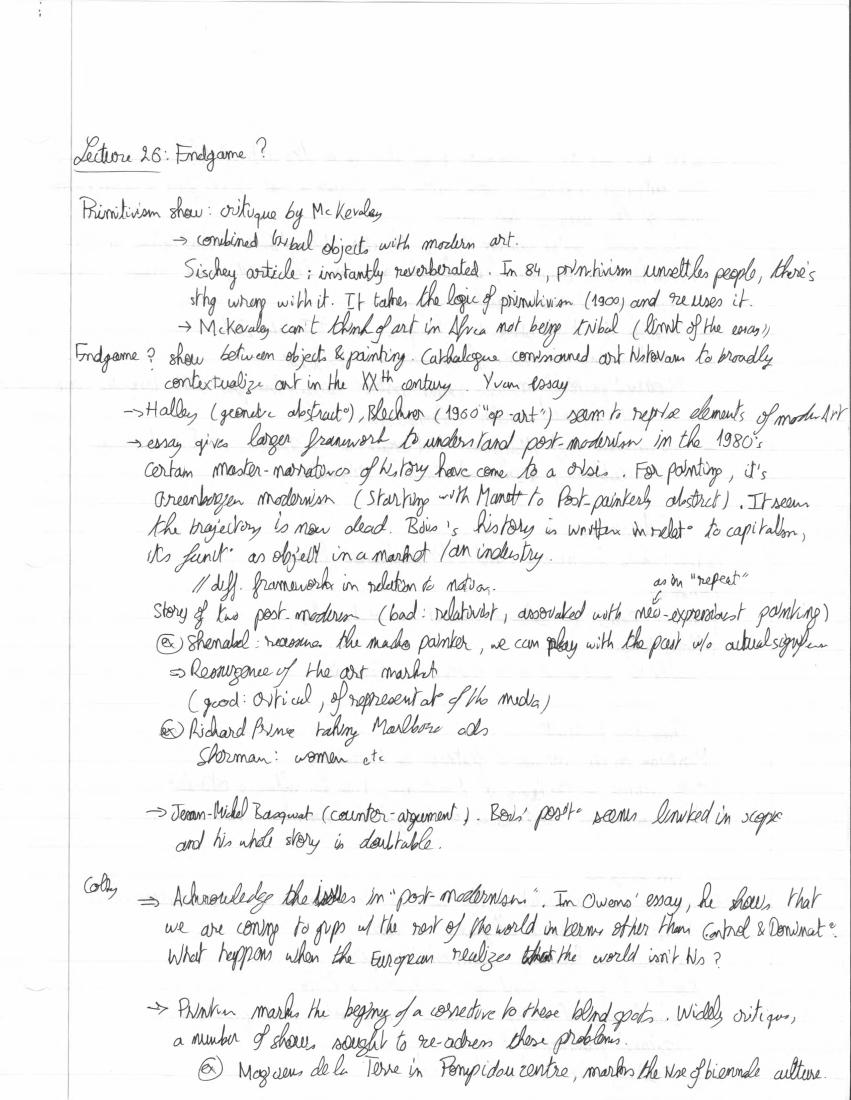 Lecture 26: Endgame ?
Primitivism show: critique by McKevaley
→ combined tribal objects with modern art.
Sischey article : instantly reverberated. In 84, primitivism unsettles people, there's
sthg wrong with it. It takes the logic of primitivism (1900) and re uses it.
→ McKevaley can't think of art in Africa not being tribal (limit of the essay)
Endgame ? show between objects & painting. Cathalogue commissioned art to broadly
contextualize art in the XXth century. Yvan essay
→ Halley (geometric abstract°), Blechner (1960 "op-art") seem to reprise elements of modern Art
→ essay gives larger framework to understand post-modernism in the 1980's
Certain master-narratives of history have come to a crisis. For painting, it's
Greenbergen modernism (starting with Manet to Post-painterly abstract). It seems
the trajectory is now dead. Bois's history is written in relat° to capitalism,
its funct° as object in a market / an industry.
// diff. frameworks in relation to
as in "repeat"
Story of two post-modernism (bad: relativist, associated with neo-expressionist painting)
(ex) Shenabel: the macho painter, we can play with the past w/o actual
⇒ Resurgence of the art market
(good: critical, of representat° of the media)
(ex) Richard Prince taking Marlboro ads
Sherman: women etc
→ Jean-Michel Basquiat (counter-argument). Bois' posit° seems limited in scope
and his whole story is doubtable.
⇒ Acknowledge the issues in "post-modernism". In Owens' essay, he shows that
we are coming to grips w/ the rest of the world in terms other than Control & Dominat°.
What happens when the European realizes the world isn't his ?
→ marks the beging of a corrective to these blind spots. Widely critique,
a number of shows sought to re-adress these problems.
(ex) Magiciens de la Terre in Pompidou centre, marks the rise of biennale culture.